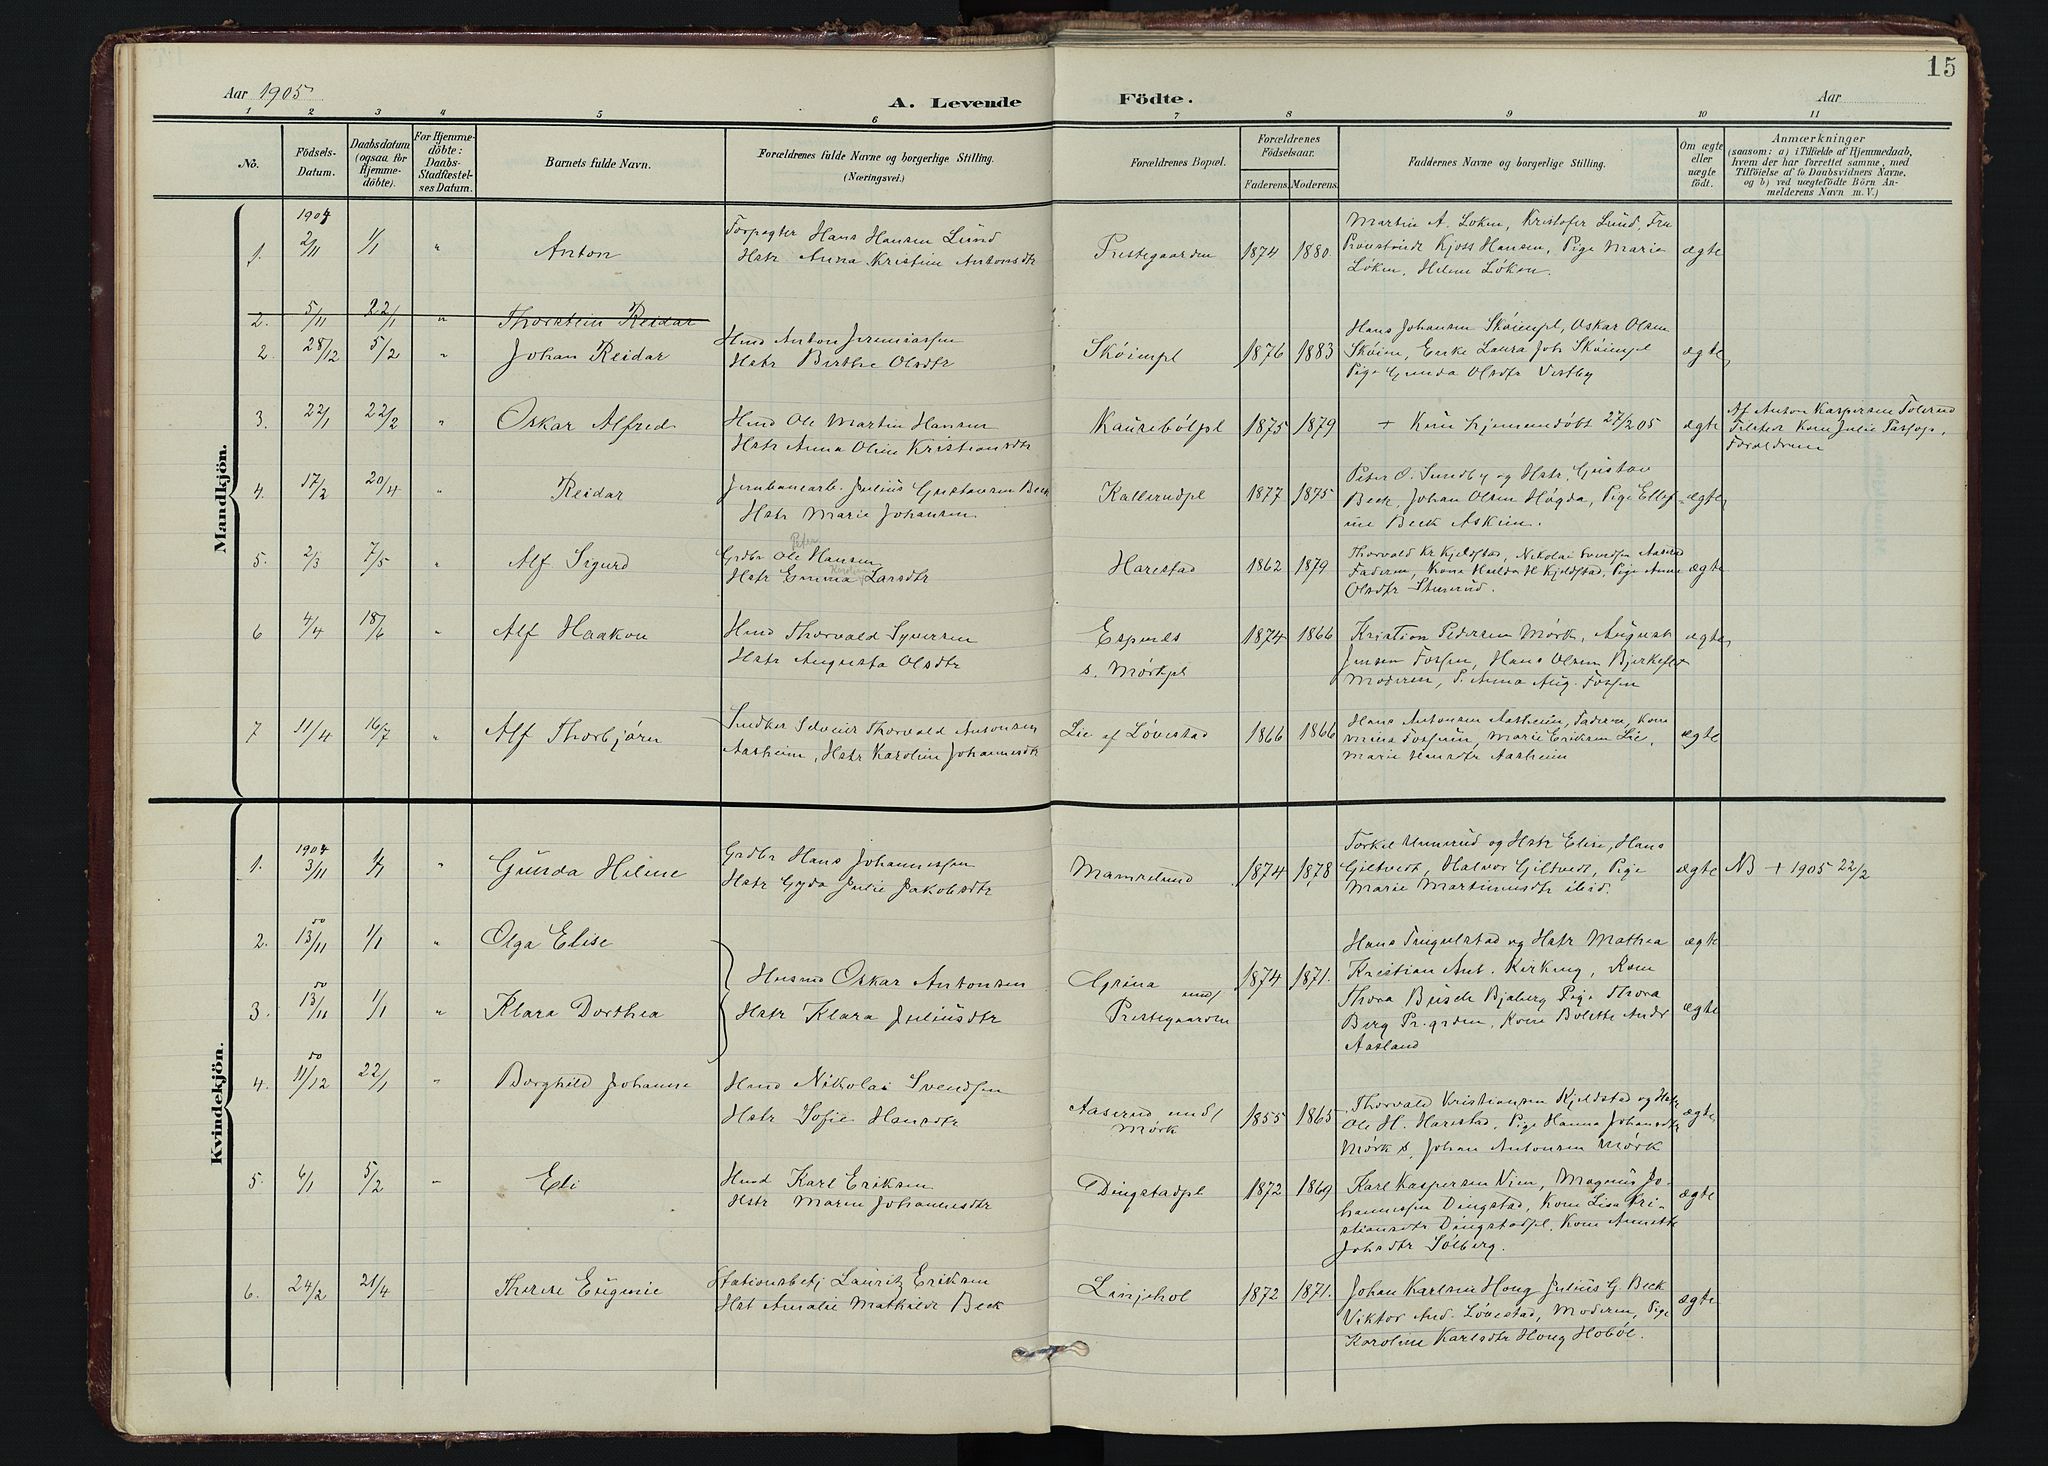 15
Aar 1905
A. Levende Födte.
Aar
1 2 3 4 5 6 7 8 9 10 11
No.
Födsels-Datum.
Daabsdatum (ogsaa for Hjemmedöbte).
For Hjemmedöbte: Daabs-Stadfestelses Datum.
Barnets fulde Navn.
Forældrenes fulde Navne og borgerlige Stilling.
(Næringsvei.)
Forældrenes Bopæl.
Forældrenes Födselsaar.
Faderens. Moderens.
Faddernes Navne og borgerlige Stilling.
Om ægte eller uægte født.
Anmærkninger
(saasom: a) i Tilfælde af Hjemmedaab,
hvem der har forrettet samme, med
Tilföielse af to Daabsvidners Navne,
og b) ved uægtefödte Börn An-
melderens Navn m. V.)
Mandkjön.
1904
1. 2/11 1/1 " Anton
Forpagter Hans Hansen Lund
Hstr Anna Kristine Antonsdtr
Prestegaarden 1874 1880
Martin A. Løken, Kristofer Lund, Fru
Kjoss Hansen, Pige Marie
Løken, Helene Løken.
ægte
2. 5/11 22/1 " Thorstein Reidar
2. 28/12 5/2 " Johan Reidar
Hmd Anton Jeremiassen
Hstr Birthe Olsdtr
Skøienpl 1876 1883
Hans Johansen Skøienpl, Oskar Olsen
Skøien, Enke Laura Joh. Skøienpl
Pige Gunda Olsdtr Vestby
ægte
3. 22/1 22/2 " Oskar Alfred
Hmd Ole Martin Hansen
Hstr Anna Oline Kristiansdtr
Kaurebølpl 1875 1879
+ Kun hjemmedøbt 27/2 05
ægte
Af Anton Kaspersen
Kone Julie
Forældrene
4. 17/2 20/4 " Reidar
Jernbanearb. Julius Gustavsen Beck
Hstr Marie Johansen
Kallerudpl 1877 1875
Peter O. Sundby og Hstr, Gustav
Beck, Johan Olsen Høgda, Pige Ellef-
ine Beck Askim.
ægte
5. 2/3 7/5 " Alf Sigurd
Peter
Grdbr Ole Hansen
Karoline
Hstr Emma Larsdtr
Harestad 1862 1879
Thorvald Kr Kjeldstad, Nikolai Svendsen Aaserud
Faderen, Kone Hulda H Kjeldstad, Pige Anne
Olsdtr
ægte
6 4/4 18/6 " Alf Haakon
Hmd Thorvald Syversen
Hstr Augusta Olsdtr
Espenes
s. Mørkpl
1874 1866
Kristian Pedersen Mørk, August
Jensen Fossen, Hans Olsen
Moderen, P. Anna Aug. Fossen
ægte
7 11/4 16/7 " Alf Thorbjørn
Snedker Selveier Thorvald Antonsen
Aasheim, Hstr Karoline Johannesdtr
Lie af Løvestad 1866 1866
Hans Antonsen Aasheim, Faderen, Kone
Mina, Marie Eriksen Lie,
Marie Hansdtr Aasheim
ægte
Kvindekjön.
1904
1. 3/11 1/1 " Gunda Heline
Grdbr Hans Johannessen
Hstr Gyda Julie Jakobsdtr
Mamrelund 1874 1878
Torkel Unnerud og Hstr Elise, Hans
Giltvedt, Halvor Giltvedt, Pige
Marie Martinusdtr ibid.
ægte NB + 1905 22/2
2. 13/11 1/1 " Olga Elise
3. 13/11 1/1 " Klara Dorthea
Husmd Oskar Antonsen
Hstr Klara Juliusdtr
Grina und/
Prestegaarden
1874 1871.
Hans Tingulstad og Hstr Mathea
Kristian Ant. Kirkeng, Kone
Thora Busch Bjaberg Pige Thora
Berg Pr.grden, Kone Bolette Andr
Aasland
ægte
ægte
4. 11/12 22/1 " Borghild Johanne
Hmd Nikolai Svendsen
Hstr Sofie Hansdtr
Aaserud und/
Mørk
1855 1865
Thorvald Kristiansen Kjeldstad og Hstr
Ole H. Harestad, Pige Hanna Johansdtr
Mørk s, Johan Antonsen Mørk
ægte
5. 6/1 5/2 " Eli
Hmd Karl Eriksen
Hstr Maren Johannesdtr
Dingstadpl 1872 1869
Karl Kaspersen Vien, Magnus Jo-
hannessen Dingstad, Kone Lisa Kri-
stiansdtr Dingstadpl, Kone Annette
Johsdtr Solberg.
ægte
6. 24/2 21/4 Therese Eugenie
Stationsbetj Lauritz Eriksen
Hst Amalie Mathilde Beck
Linjehol 1872 1871.
Johan Karlsen Houg Julius G. Beck
Viktor And. Løvestad, Moderen, Pige
Karoline Karlsdtr Houg Hobøl.
ægte